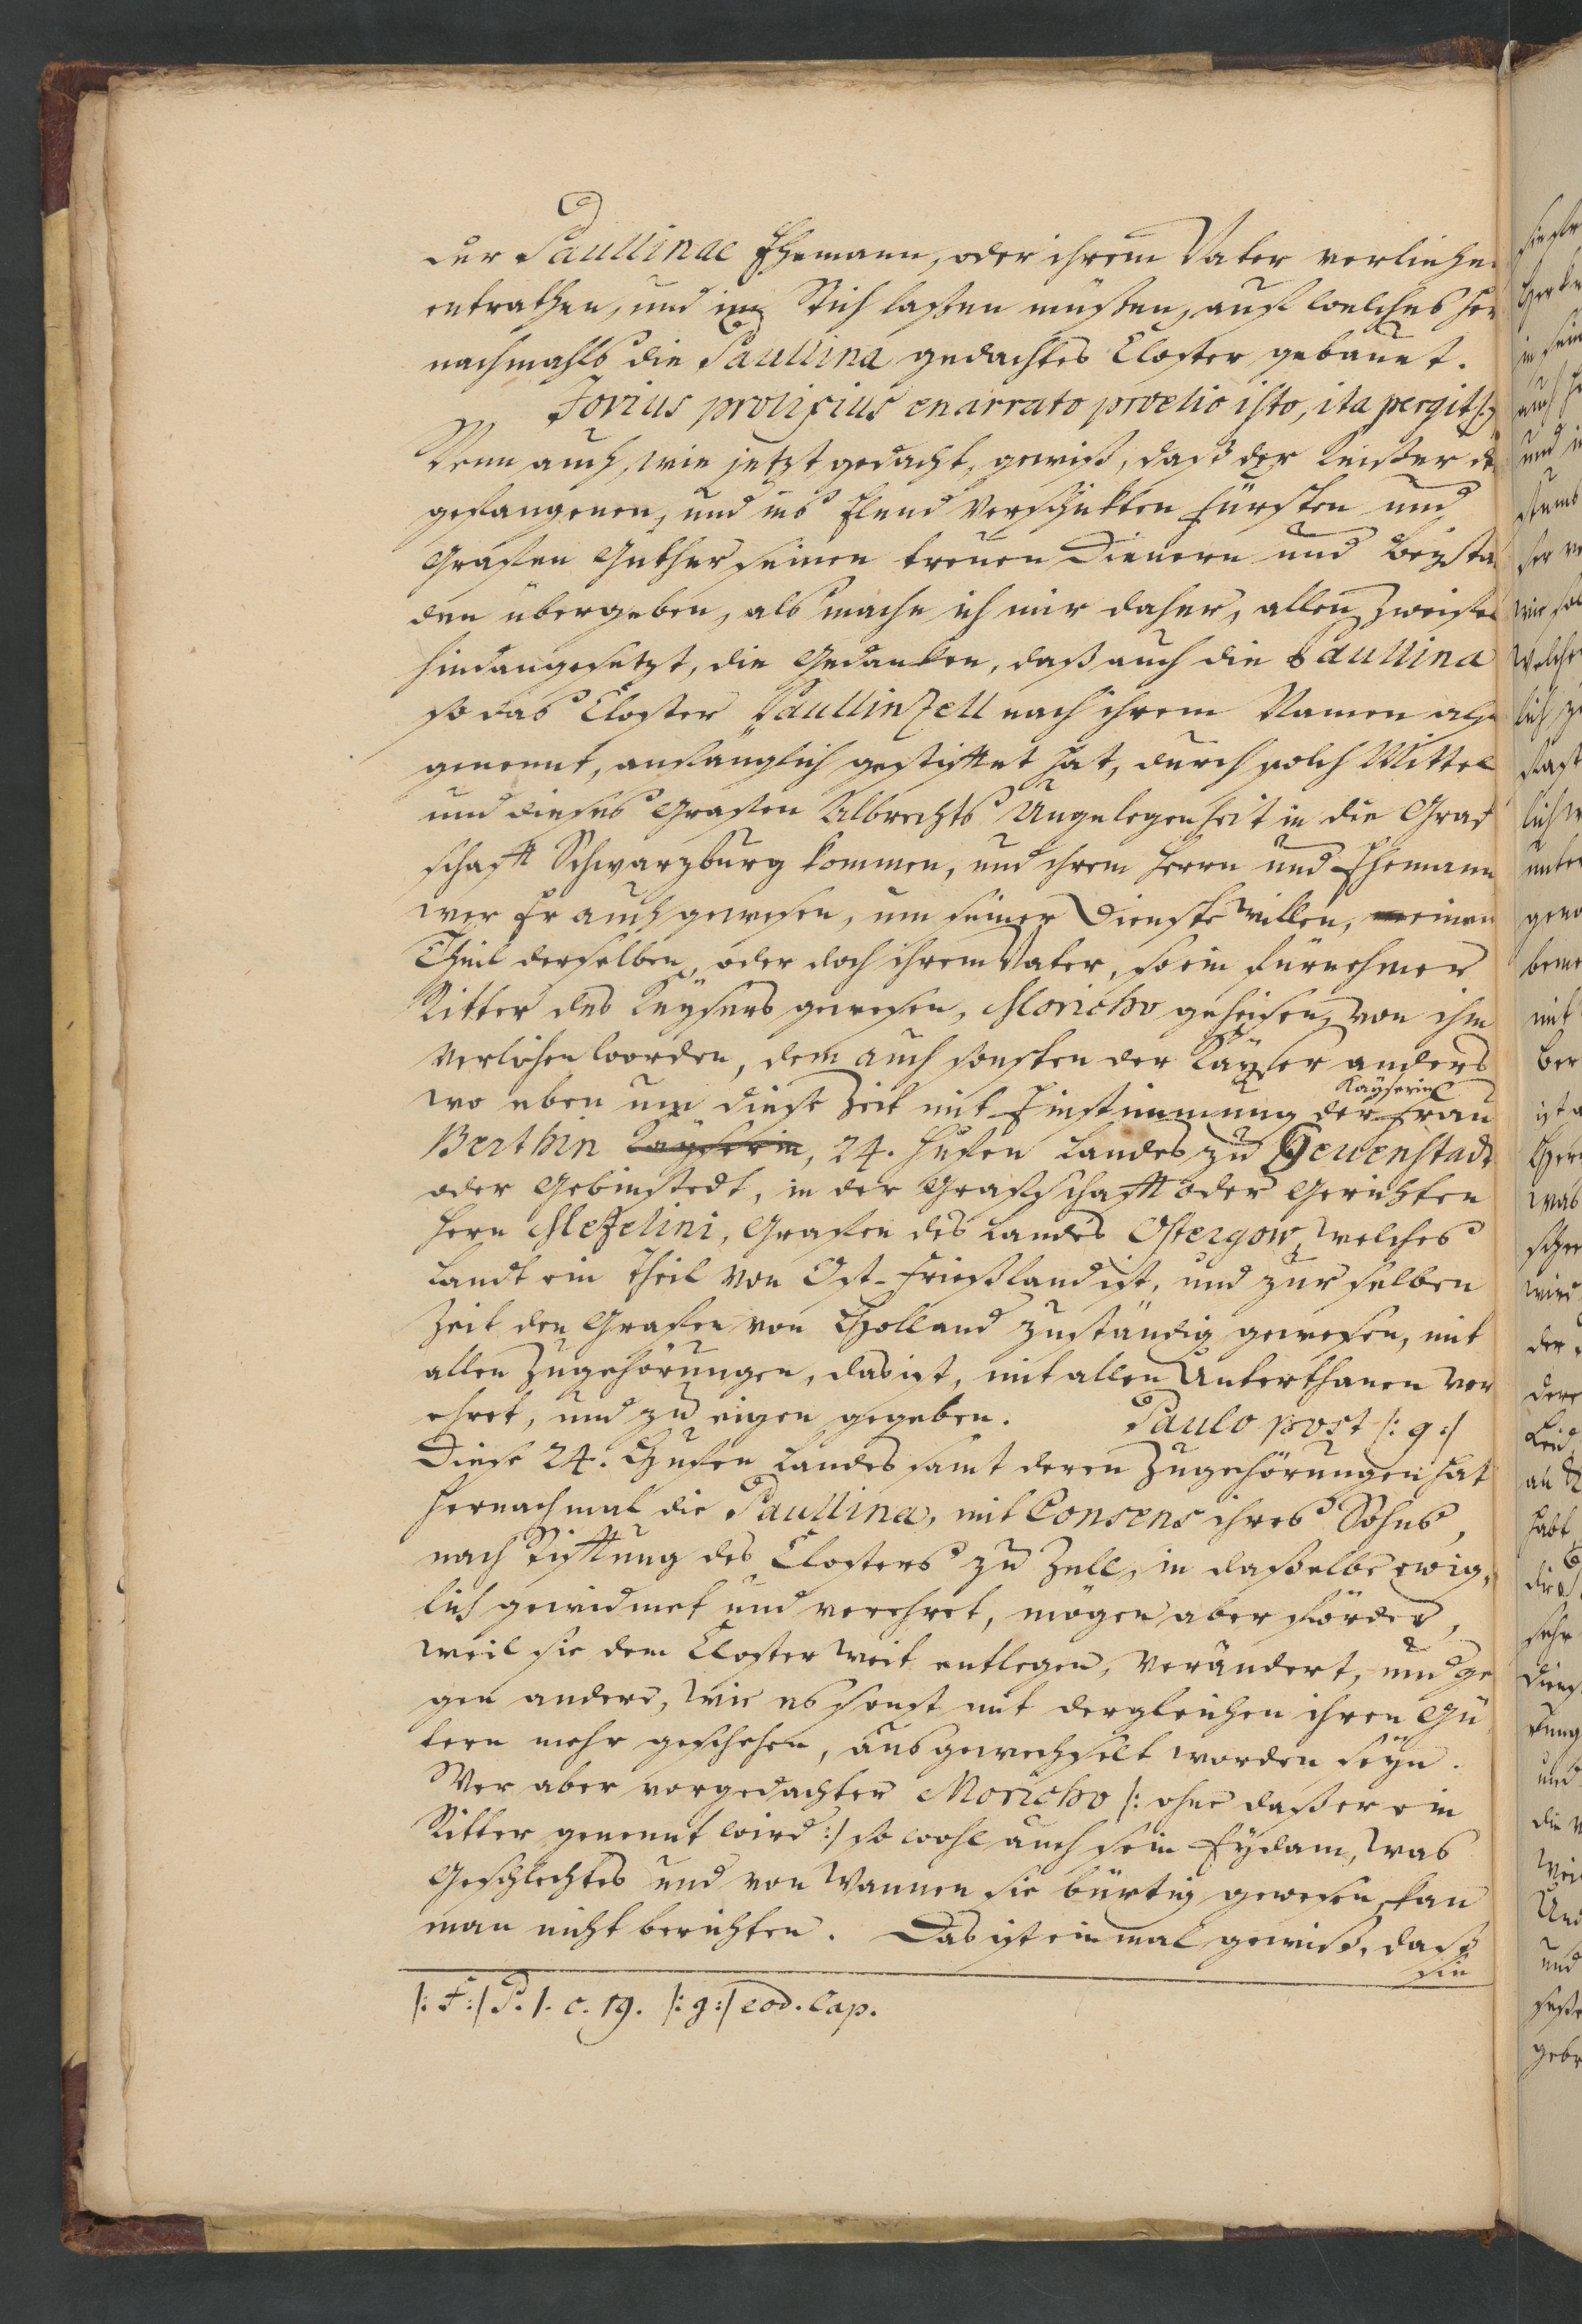 der Paullinae Ehemann, oder ihrem Vater verliehen
entrathen, und im Stich laßen müßen, auf welches her
nachmahls die Paullina gedachtes Closter gebauet.
Jovius prolixius enarrato proelio isto, ita pergit
Wenn auch, wie jetzt gedacht, gewiß, daß der Keißer de
gefangenen, und ins Elend verschickten Fürsten und
Grafen Güther seinen treuen Dienern und Beysta
den übergeben, als mache ich mir daher, allen Zweifel
hindangesetzt, die Gedancken, daß auch die Paullina
so das Closter Paullinzell nach ihrem Namen also
genennt, anfänglich gestifftet hat, durch solch Mittel
und dieses Grafen Albrechts Ungelegenheit in die Graf
schafft Schwarzburg kommen, und ihrem Herrn und Ehemann
wer Er auch gewesen, um seiner Dienste willen, einen
Theil derselben, oder doch ihrem Vater, so ein fürnehmer
Ritter des Keysers gewesen, Moricho geheisen, von ihm
verliehen worden, dem auch sonsten der Kayser anders
Kayserin
wo eben um diese Zeit mit Einstimmung der Frau
Berthin Kayserin, 24. Hufen Landes zu Hewenstadt
oder Gebinstedt, in der Grafschafft oder Gerichten
Herrn Mezelini, Grafen des Landes Ostergow, welches
Landt ein Theil von Ost-Frießland ist, und zur selben
Zeit den Grafen von Holland zuständig gewesen, mit
allen Zugehörungen, das ist, mit allen Unterthanen ver
ehret, und zu eigen gegeben. Paulo post /: g :/
Diese 24. Hufen Landes samt deren Zugehörungen hat
hernachmal die Paullina, mit Consens ihres Sohns,
nach Stifftung des Closters zu Zell, in daßelbe ewig-
lich gewidmet und verehret, mögen aber förder,
weil sie dem Closter weit entlegen, verändert, und ge
gen andere, wie es sonst mit dergleichen ihren Gü
tern mehr geschehen, ausgewechselt worden seyn.
Wer aber vorgedachter Moricho /: ohne daß er ein
Ritter genennt wird :/ so wohl auch sein Eydam, was
Geschlechtes und von wannen sie bürtig gewesen, kan
man nicht berichten. Das ist einmal gewiß, daß
sie
/: f :/ P. 1. c. 19. /: g :/ eod. Cap.